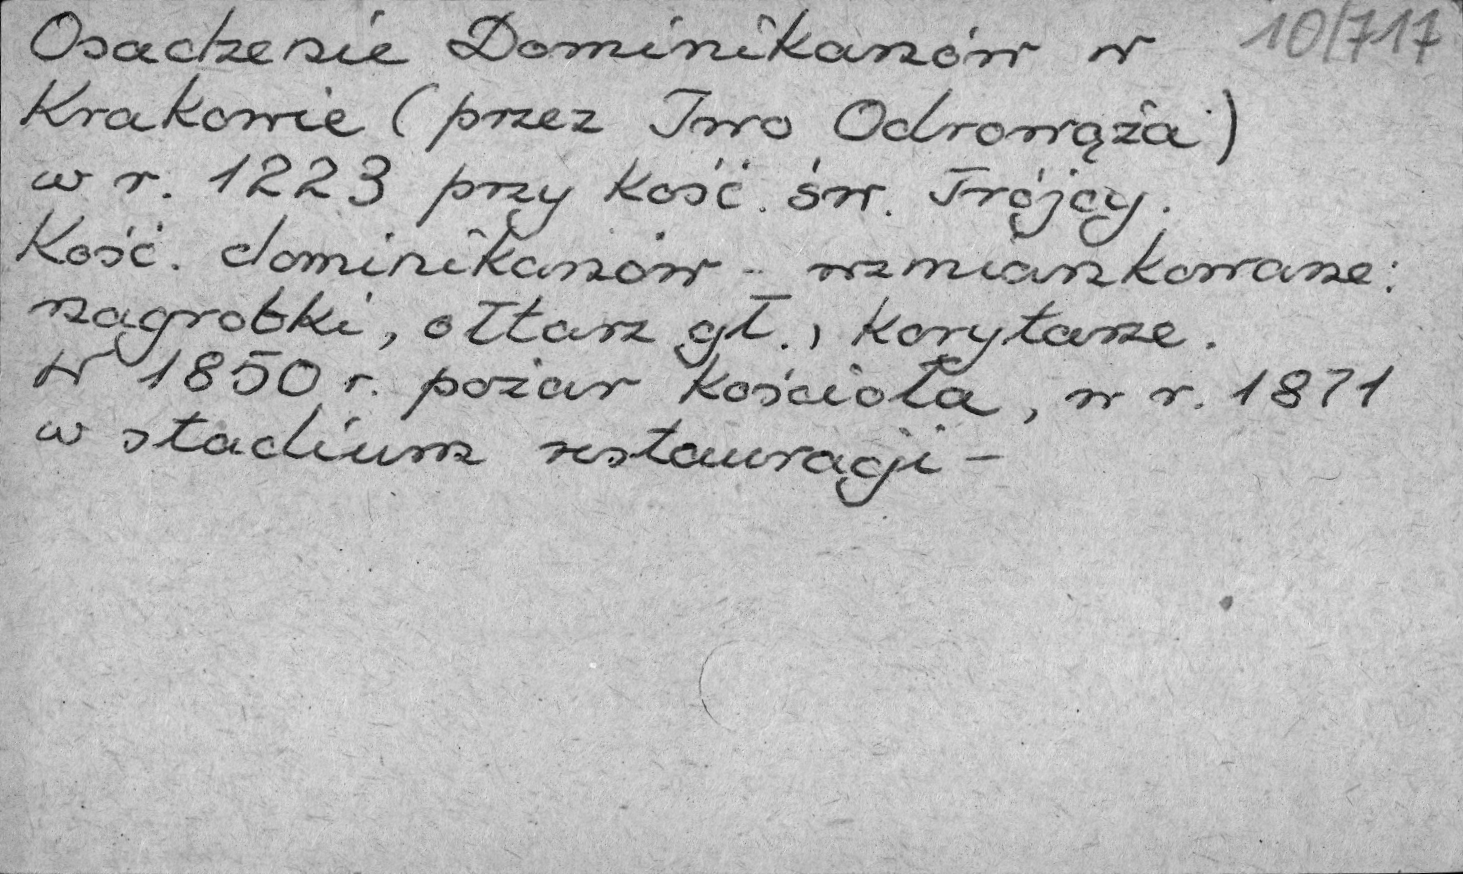 Osadzenie Dominikanów w 10/717
Krakowie (przez Iwo Odrowąża)
w r. 1223 przy Kość. św. Trójcy.
Kość. dominikanów - wzmiankowane:
nagrobki, ołtarz gł., korytarze.
W 1850 r. pożar kościoła, w r. 1871
w stadium restauracji -